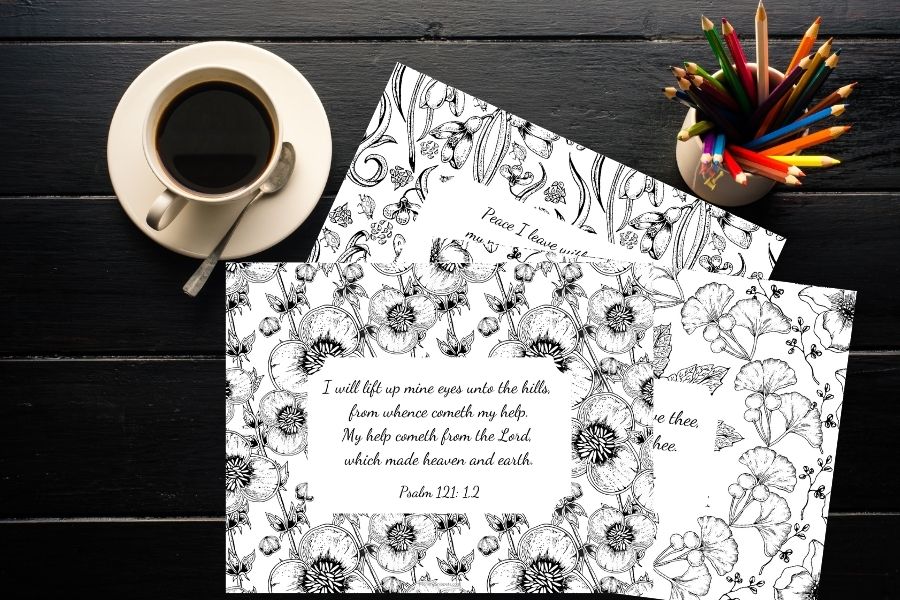 Peace I leave with
my
I will lift up mine eyes unto the hills,
from whence cometh my help.
My help cometh from the Lord,
which made heaven and earth.
Psalm 121: 1.2
thee,
hee.